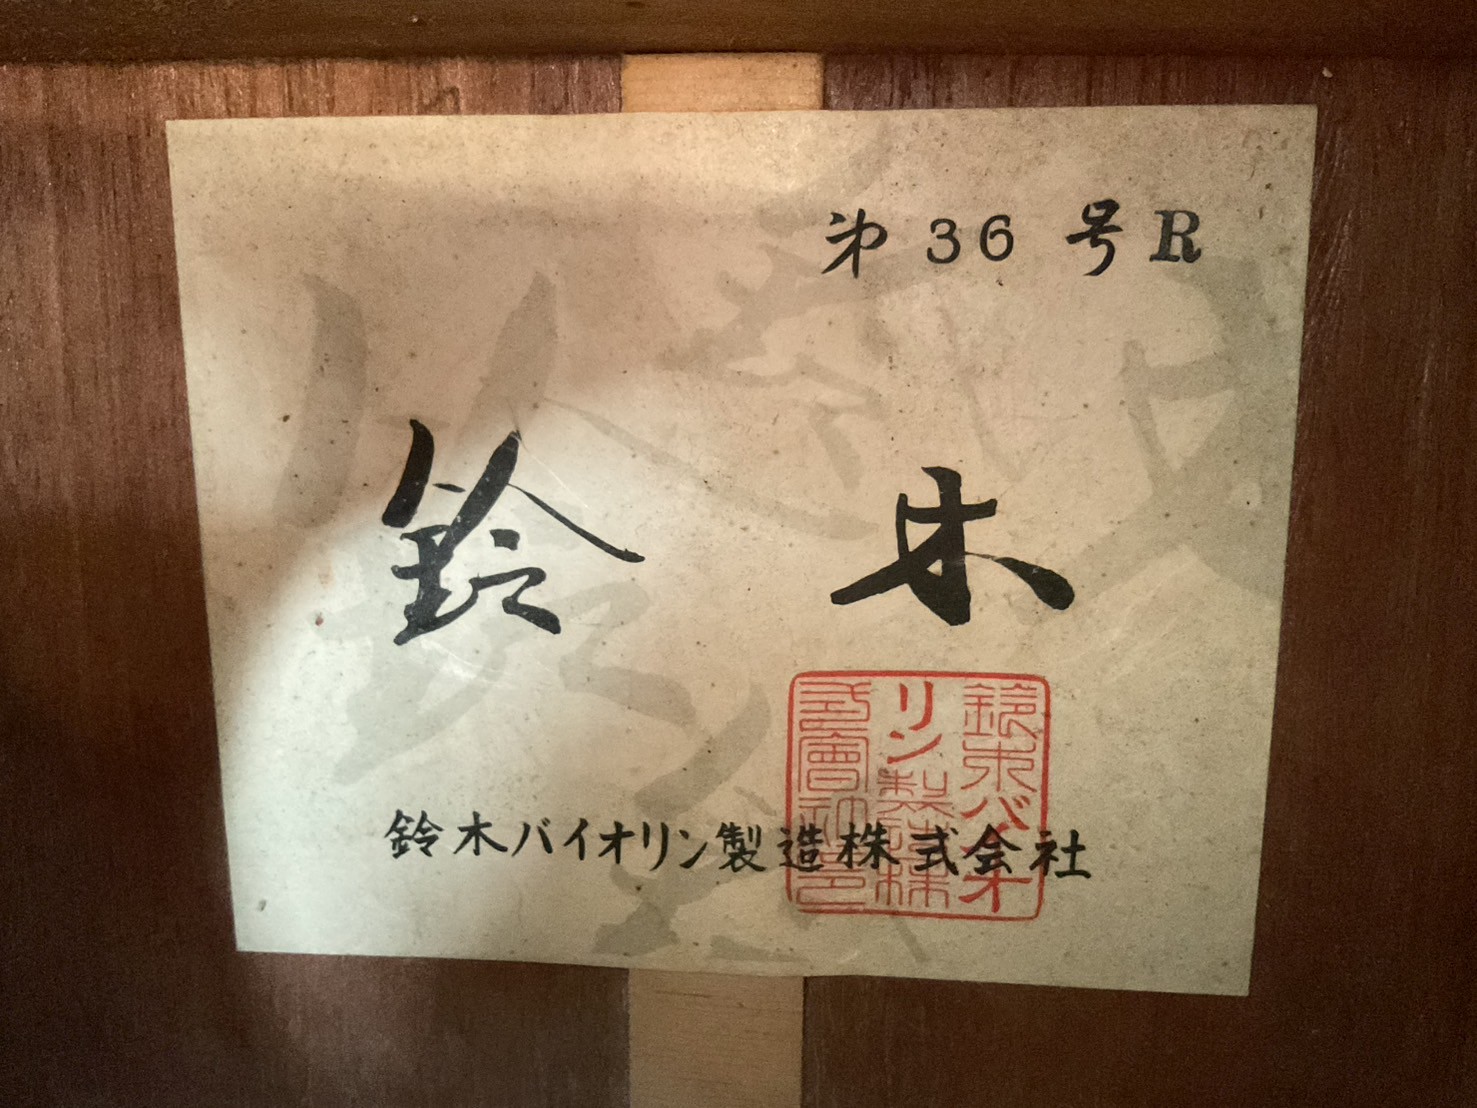 第 36 号 R
鈴 木
鈴木バイオリン製造株式会社
鈴木バイオ
リン製造株
式會社之印